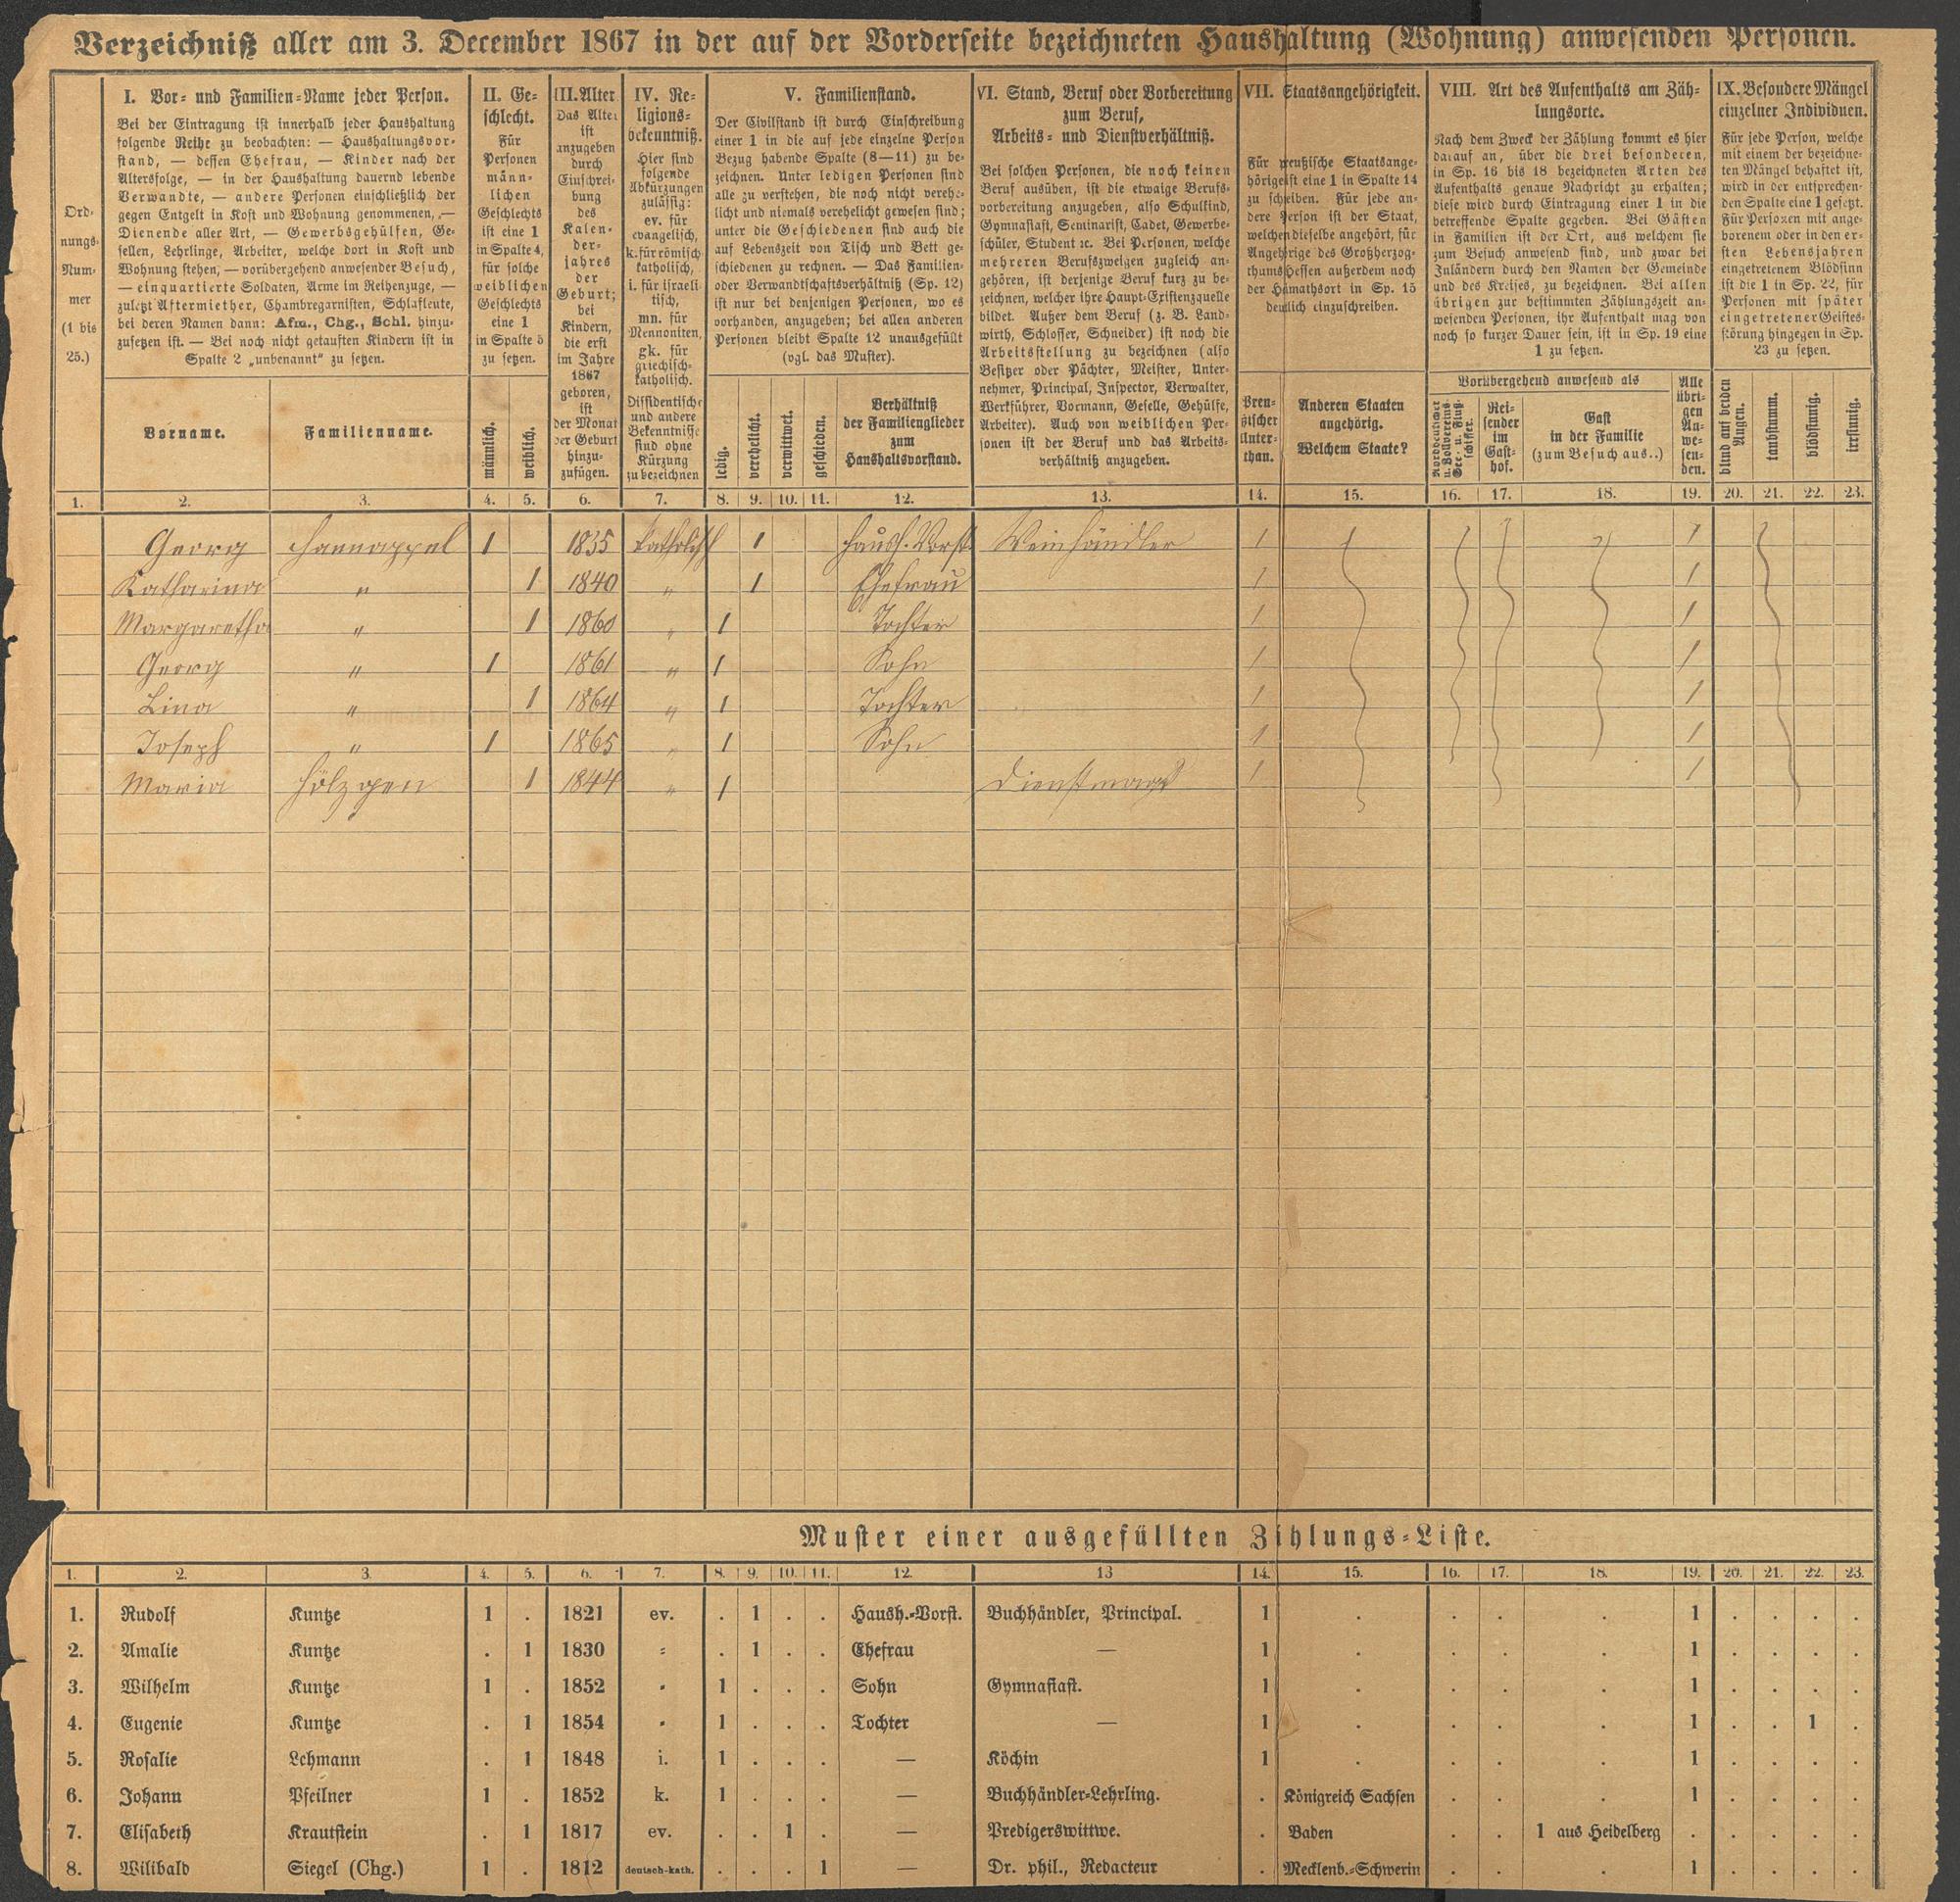 Verzeichniß aller am 3. December 1867 in der auf der Vorderseite bezeichneten Haushaltung (Wohnung) anwesenden Personen.
Ord-
nungs-
Num-
mer
(1 bis
25.)
I. Vor- und Familien-Name jeder Person.
Bei der Eintragung ist innerhalb jeder Haushaltung
folgende Reihe zu beobachten: — Haushaltungsvor-
stand, — dessen Ehefrau, — Kinder nach der
Altersfolge, — in der Haushaltung dauernd lebende
Verwandte, — andere Personen einschließlich der
gegen Entgelt in Kost und Wohnung genommenen, —
Dienende aller Art, — Gewerbsgehülfen, Ge-
sellen, Lehrlinge, Arbeiter, welche dort in Kost und
Wohnung stehen, — vorübergehend anwesender Besuch,
— einquartierte Soldaten, Arme im Reihenzuge, —
zuletzt Aftermiether, Chambregarnisten, Schlafleute,
bei deren Namen dann: Afm., Chg., Schl. hinzu-
zusetzen ist. — Bei noch nicht getauften Kindern ist in
Spalte 2 „unbenannt“ zu setzen.
Vorname.
Familienname.
II. Ge-
schlecht.
Für
Personen
männ-
lichen
Geschlechts
ist eine 1
in Spalte 4,
für solche
weiblichen
Geschlechts
eine 1
in Spalte 5
zu setzen.
männlich.
weiblich.
III. Alter
Das Alter
ist
anzugeben
durch
Einschrei-
bung
des
Kalen-
der-
jahres
der
Geburt;
bei
Kindern,
die erst
im Jahre
1867
geboren,
ist
der Monat
der Geburt
hinzu-
zufügen.
IV. Re-
ligions-
bekenntniß.
Hier sind
folgende
Abkürzungen
zulässig:
ev. für
evangelisch,
k. für römisch-
katholisch,
i. für israeli-
tisch,
mn. für
Mennoniten,
gk. für
griechisch-
katholisch.
Dissidentische
und andere
Bekenntnisse
sind ohne
Kürzung
zu bezeichnen
V. Familienstand.
Der Civilstand ist durch Einschreibung
einer 1 in die auf jede einzelne Person
Bezug habende Spalte (8—11) zu be-
zeichnen. Unter ledigen Personen sind
alle zu verstehen, die noch nicht verehe-
licht und niemals verehelicht gewesen sind;
unter die Geschiedenen sind auch die
auf Lebenszeit von Tisch und Bett ge-
schiedenen zu rechnen. — Das Familien-
oder Verwandtschaftsverhältniß (Sp. 12)
ist nur bei denjenigen Personen, wo es
vorhanden, anzugeben; bei allen anderen
Personen bleibt Spalte 12 unausgefüllt
(vgl. das Muster).
ledig.
verehelicht.
verwittwet.
geschieden.
Verhältniß
der Familienglieder
zum
Haushaltsvorstand.
VI. Stand, Beruf oder Vorbereitung
zum Beruf,
Arbeits- und Dienstverhältniß.
Bei solchen Personen, die noch keinen
Beruf ausüben, ist die etwaige Berufs-
vorbereitung anzugeben, also Schulkind,
Gymnasiast, Seminarist, Cadet, Gewerbe-
schüler, Student ꝛc. Bei Personen, welche
mehreren Berufszweigen zugleich an-
gehören, ist derjenige Beruf kurz zu be-
zeichnen, welcher ihre Haupt-Existenzquelle
bildet. Außer dem Beruf (z. B. Land-
wirth, Schlosser, Schneider) ist noch die
Arbeitsstellung zu bezeichnen (also
Besitzer oder Pächter, Meister, Unter-
nehmer, Principal, Inspector, Verwalter,
Werkführer, Vormann, Geselle, Gehülfe,
Arbeiter). Auch von weiblichen Per-
sonen ist der Beruf und das Arbeits-
verhältniß anzugeben.
VII. Staatsangehörigkeit.
Für preußische Staatsange-
hörige ist eine 1 in Spalte 14
zu schreiben. Für jede an-
dere Person ist der Staat,
welchem dieselbe angehört, für
Angehörige des Großherzog-
thums Hessen außerdem noch
der Heimathsort in Sp. 15
deutlich einzuschreiben.
Preu-
ßischer
Unter-
than.
Anderen Staaten
angehörig.
Welchem Staate?
VIII. Art des Aufenthalts am Zäh-
lungsorte.
Nach dem Zweck der Zählung kommt es hier
darauf an, über die drei besonderen,
in Sp. 16 bis 18 bezeichneten Arten des
Aufenthalts genaue Nachricht zu erhalten;
diese wird durch Eintragung einer 1 in die
betreffende Spalte gegeben. Bei Gästen
in Familien ist der Ort, aus welchem sie
zum Besuch anwesend sind, und zwar bei
Inländern durch den Namen der Gemeinde
und des Kreises, zu bezeichnen. Bei allen
übrigen zur bestimmten Zählungszeit an-
wesenden Personen, ihr Aufenthalt mag von
noch so kurzer Dauer sein, ist in Sp. 19 eine
1 zu setzen.
Vorübergehend anwesend als
Norddeutscher
u. Zollvereins-
See- u. Fluß-
schiffer.
Rei-
sender
im
Gast-
hof.
Gast
in der Familie
(zum Besuch aus..)
Alle
übri-
gen
An-
we-
sen-
den.
IX. Besondere Mängel
einzelner Individuen.
Für jede Person, welche
mit einem der bezeichne-
ten Mängel behaftet ist,
wird in der entsprechen-
den Spalte eine 1 gesetzt.
Für Personen mit ange-
borenem oder in den er-
sten Lebensjahren
eingetretenem Blödsinn
ist die 1 in Sp. 22, für
Personen mit später
eingetretener Geistes-
störung hingegen in Sp.
23 zu setzen.
blind auf beiden
Augen.
taubstumm.
blödsinnig.
irrsinnig.
1. 2. 3. 4. 5. 6. 7. 8. 9. 10. 11. 12. 13. 14. 15. 16. 17. 18. 19. 20. 21. 22. 23.
Georg Hannappel 1 1835 katholisch 1 Haush.-Vorst. Weinhändler 1 1
Katharina " 1 1840 " 1 Ehefrau 1 1
Margaretha " 1 1860 " 1 Tochter 1 1
Georg " 1 1861 " 1 Sohn 1 1
Lina " 1 1864 " 1 Tochter 1 1
Joseph " 1 1865 " 1 Sohn 1 1
Maria Hölzgen 1 1844 " 1 Dienstmagd 1 1
Muster einer ausgefüllten Zählungs-Liste.
1. 2. 3. 4. 5. 6. 7. 8. 9. 10. 11. 12. 13 14. 15. 16. 17. 18. 19. 20. 21. 22. 23.
1. Rudolf Kuntze 1 . 1821 ev. . 1 . . Haush.-Vorst. Buchhändler, Principal. 1 . . . . 1 . . . .
2. Amalie Kuntze . 1 1830 " . 1 . . Ehefrau — 1 . . . . 1 . . . .
3. Wilhelm Kuntze 1 . 1852 " 1 . . . Sohn Gymnasiast. 1 . . . . 1 . . . .
4. Eugenie Kuntze . 1 1854 " 1 . . . Tochter — 1 . . . . 1 . . 1 .
5. Rosalie Lehmann . 1 1848 i. 1 . . . — Köchin 1 . . . . 1 . . . .
6. Johann Pfeilner 1 . 1852 k. 1 . . . — Buchhändler-Lehrling. . Königreich Sachsen . . . 1 . . . .
7. Elisabeth Krautstein . 1 1817 ev. . . 1 . — Predigerswittwe. . Baden . . 1 aus Heidelberg . . . . .
8. Wilibald Siegel (Chg.) 1 . 1812 deutsch-kath. . . . 1 — Dr. phil., Redacteur . Mecklenb.-Schwerin . . . 1 . . . .